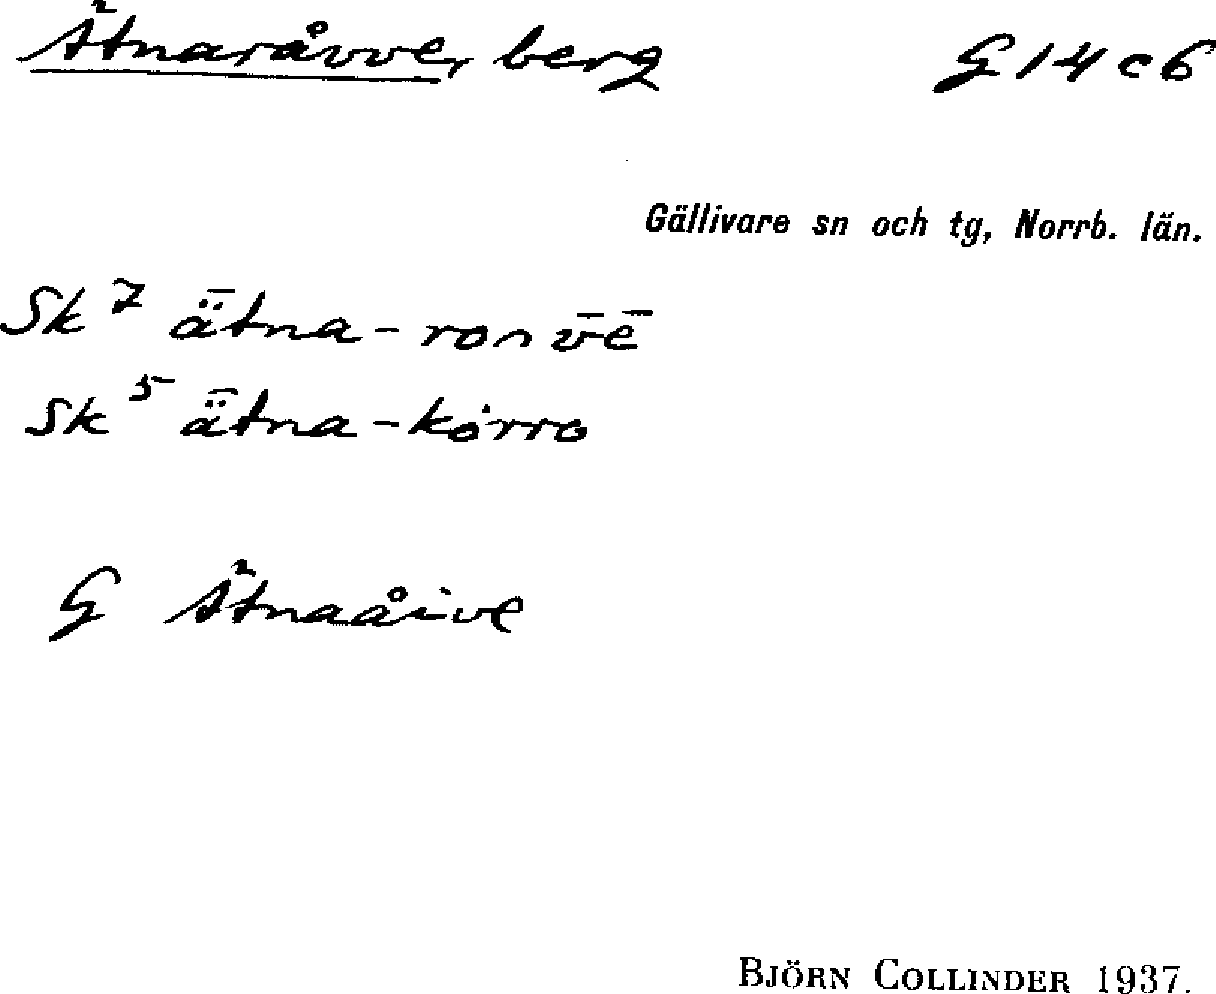 Ätnaråvve, berg G 14 c 6
Gällivare sn och tg, Norrb. län.
Sk 7 ǟtna-ronv̄ē
Sk 5 ǟtna-kȯrro
G Ätnaåive
BJÖRN COLLINDER 1937.